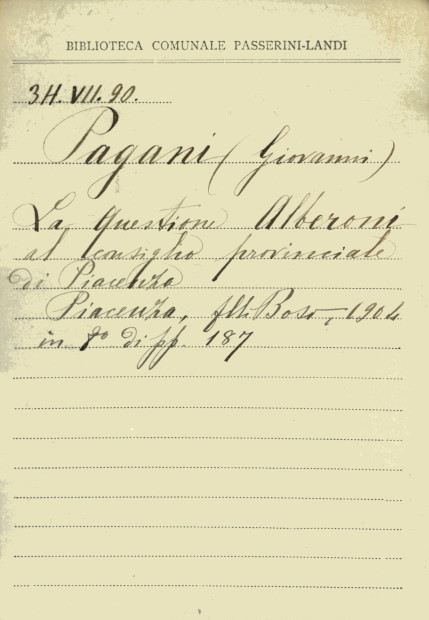 BIBLIOTECA COMUNALE PASSERINI-LANDI
3H. VII. 90.
Pagani (Giovanni)
La questione Alberoni
al consiglio provinciale
di Piacenza
Piacenza, flli Bosi, 1904
in 8º di pp. 187